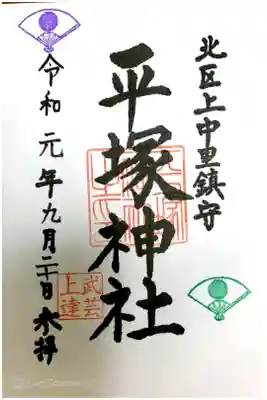 北区上中里鎮守
平塚神社
令和元年九月二十日 水拝
武芸
上達